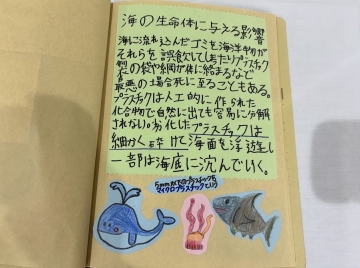 海の生命体に与える影響
海に流れ込んだゴミを海洋生物が
それらを誤飲してしまたりプラスチック
製の袋や網が体に絡まるなどで
最悪の場合死に至ることもある。
プラスチックは人工的に作られた
化合物で自然に出ても容易に分解
されない。劣化したプラスチックは
細かく砕けて海面を浮遊し
一部は海底に沈んでいく。
5mm以下のプラスチックを
マイクロプラスチックという